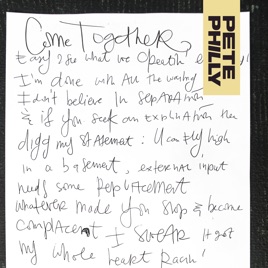 Come Together,
Easy 2 see what we operatin'
I'm done with All the waiting
I don't believe in separation
& if you seek an explanation then
digg my statement: U can fly high
in a basement, external input
needs some Replacement
whatever made you stop & become
complacent I swear it got
my whole heart Racin'!
PETE
PHILLY